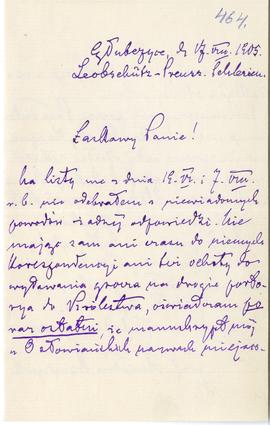 464.
Głubczyce, d. 17. VIII. 1905.
Leobschütz-Preuss. Schlesien.
Łaskawy Panie!
Na listy me z dnia 19. VI. i 7. VIII.
r. b. nie odebrałem z niewiadomych
powodów żadnej odpowiedzi. Nie
mając sam ani czasu do
korespondencyi ani też ochoty do
wydawania grosza na drogie porto-
rya do Królestwa, oświadczam po
raz ostatni, że manuskrypt mój
o słowiańskich nazwach miejsco-